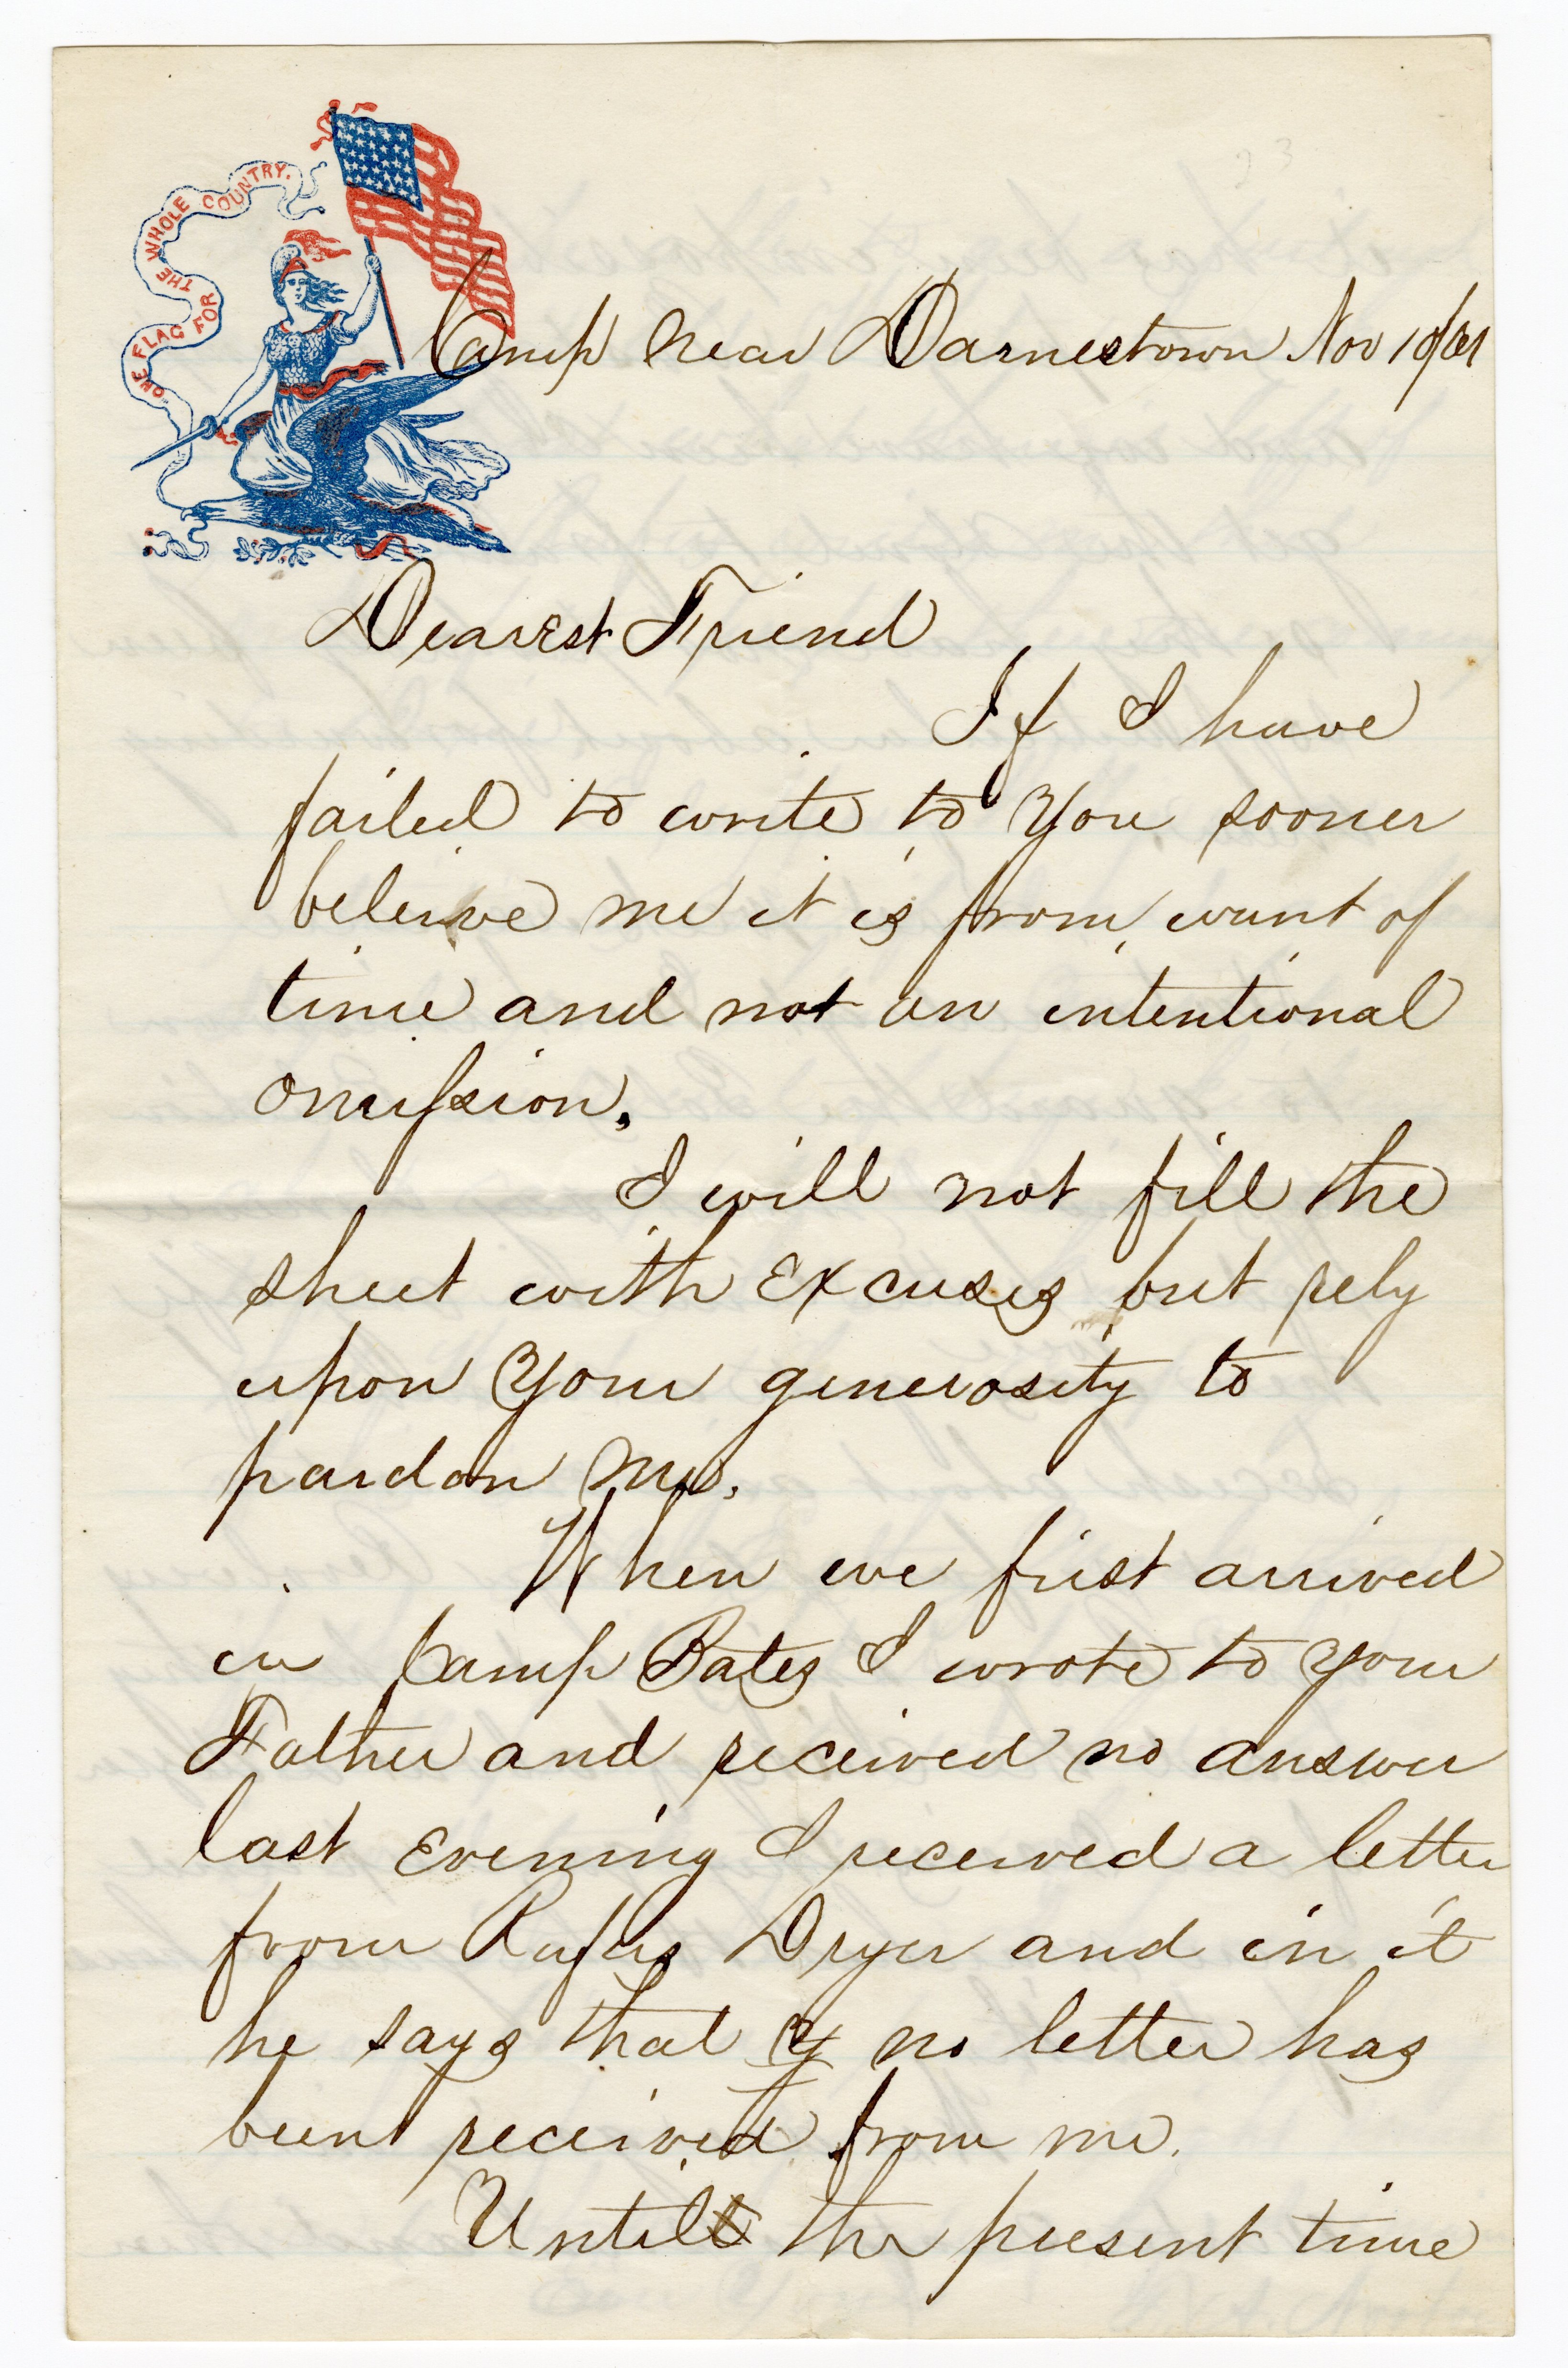 ONE FLAG FOR THE WHOLE COUNTRY.
Camp near Darnestown Nov 10/61
Dearest Friend
If I have
failed to write to you sooner
beleive me it is from want of
time and not an intentional
omission.
I will not fill the
sheet with Excuses but rely
upon your generosity to
pardon me.
When we first arrived
in Camp Bates I wrote to your
Father and received no answer
last Evening I received a letter
from Rufus Dryer and in it
he says that no letter has
been received from me.
Until the present time